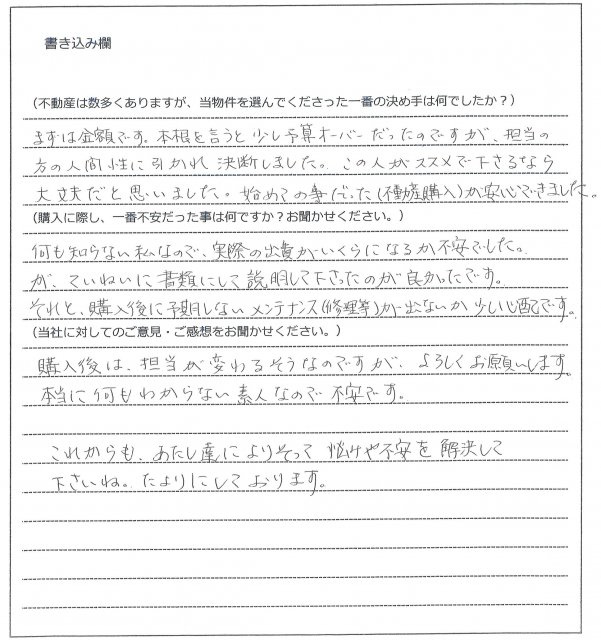 書き込み欄
（不動産は数多くありますが、当物件を選んでくださった一番の決め手は何でしたか？）
まずは金額です。本根を言うと少し予算オーバーだったのですが、担当の
方の人間性に引かれ決断しました。この人がススメで下さるなら
大丈夫だと思いました。始めての事だった(不動産購入)が安心できました。
（購入に際し、一番不安だった事は何ですか？お聞かせください。）
何も知らない私なので、実際の出費がいくらになるか不安でした。
が、ていねいに書類にして説明して下さったのが良かったです。
それと、購入後に予期しないメンテナンス(修理等)が出ないか少し心配です。
（当社に対してのご意見・ご感想をお聞かせください。）
購入後は、担当が変わるそうなのですが、よろしくお願いします。
本当に何もわからない素人なので不安です。
これからも、あたし達によりそって 悩けや不安を解決して
下さいね。たよりにしております。